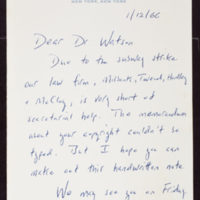 NEW YORK, NEW YORK
1/12/66
Dear Dr Watson
Due to the subway strike
our law firm, Milbank, Tweed, Hadley
& McCloy, is very short of
secretarial help. The memorandum
about your copyright couldn't be
typed. But I hope you can
make out this handwritten note.
We may see you on Friday